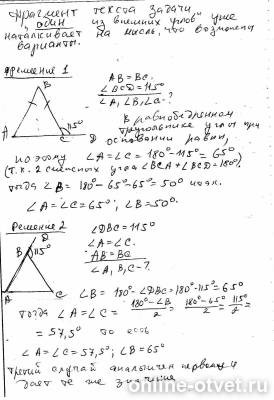 Фрагмент текста задачи,
"один из внешних углов" уже
наталкивает на мысль, что возможны
варианты.
Решение 1
AB = BC.
∠BCD = 115°
∠A, ∠B, ∠C - ?
В равнобедренном
треугольнике углы при
основании равны,
B
A C D 115°
поэтому ∠A = ∠C = 180° - 115° = 65°
(т.к. 2 смежных угла ∠BCA + ∠BCD = 180°)
тогда ∠B = 180° - 65° - 65° = 50°
∠A = ∠C = 65°, ∠B = 50°.
Решение 2
∠DBC = 115°
∠A = ∠C.
AB = BC
∠A, B, C - ?
D
B 115°
A C
∠B = 180° - ∠DBC = 180° - 115° = 65°
тогда ∠A = ∠C = 180° - ∠B / 2 = 180° - 65° / 2 = 115° / 2 =
= 57,5° то есть
∠A = ∠C = 57,5°; ∠B = 65°
третий случай аналогичен первому и
дает те же значения.
© online-otvet.ru